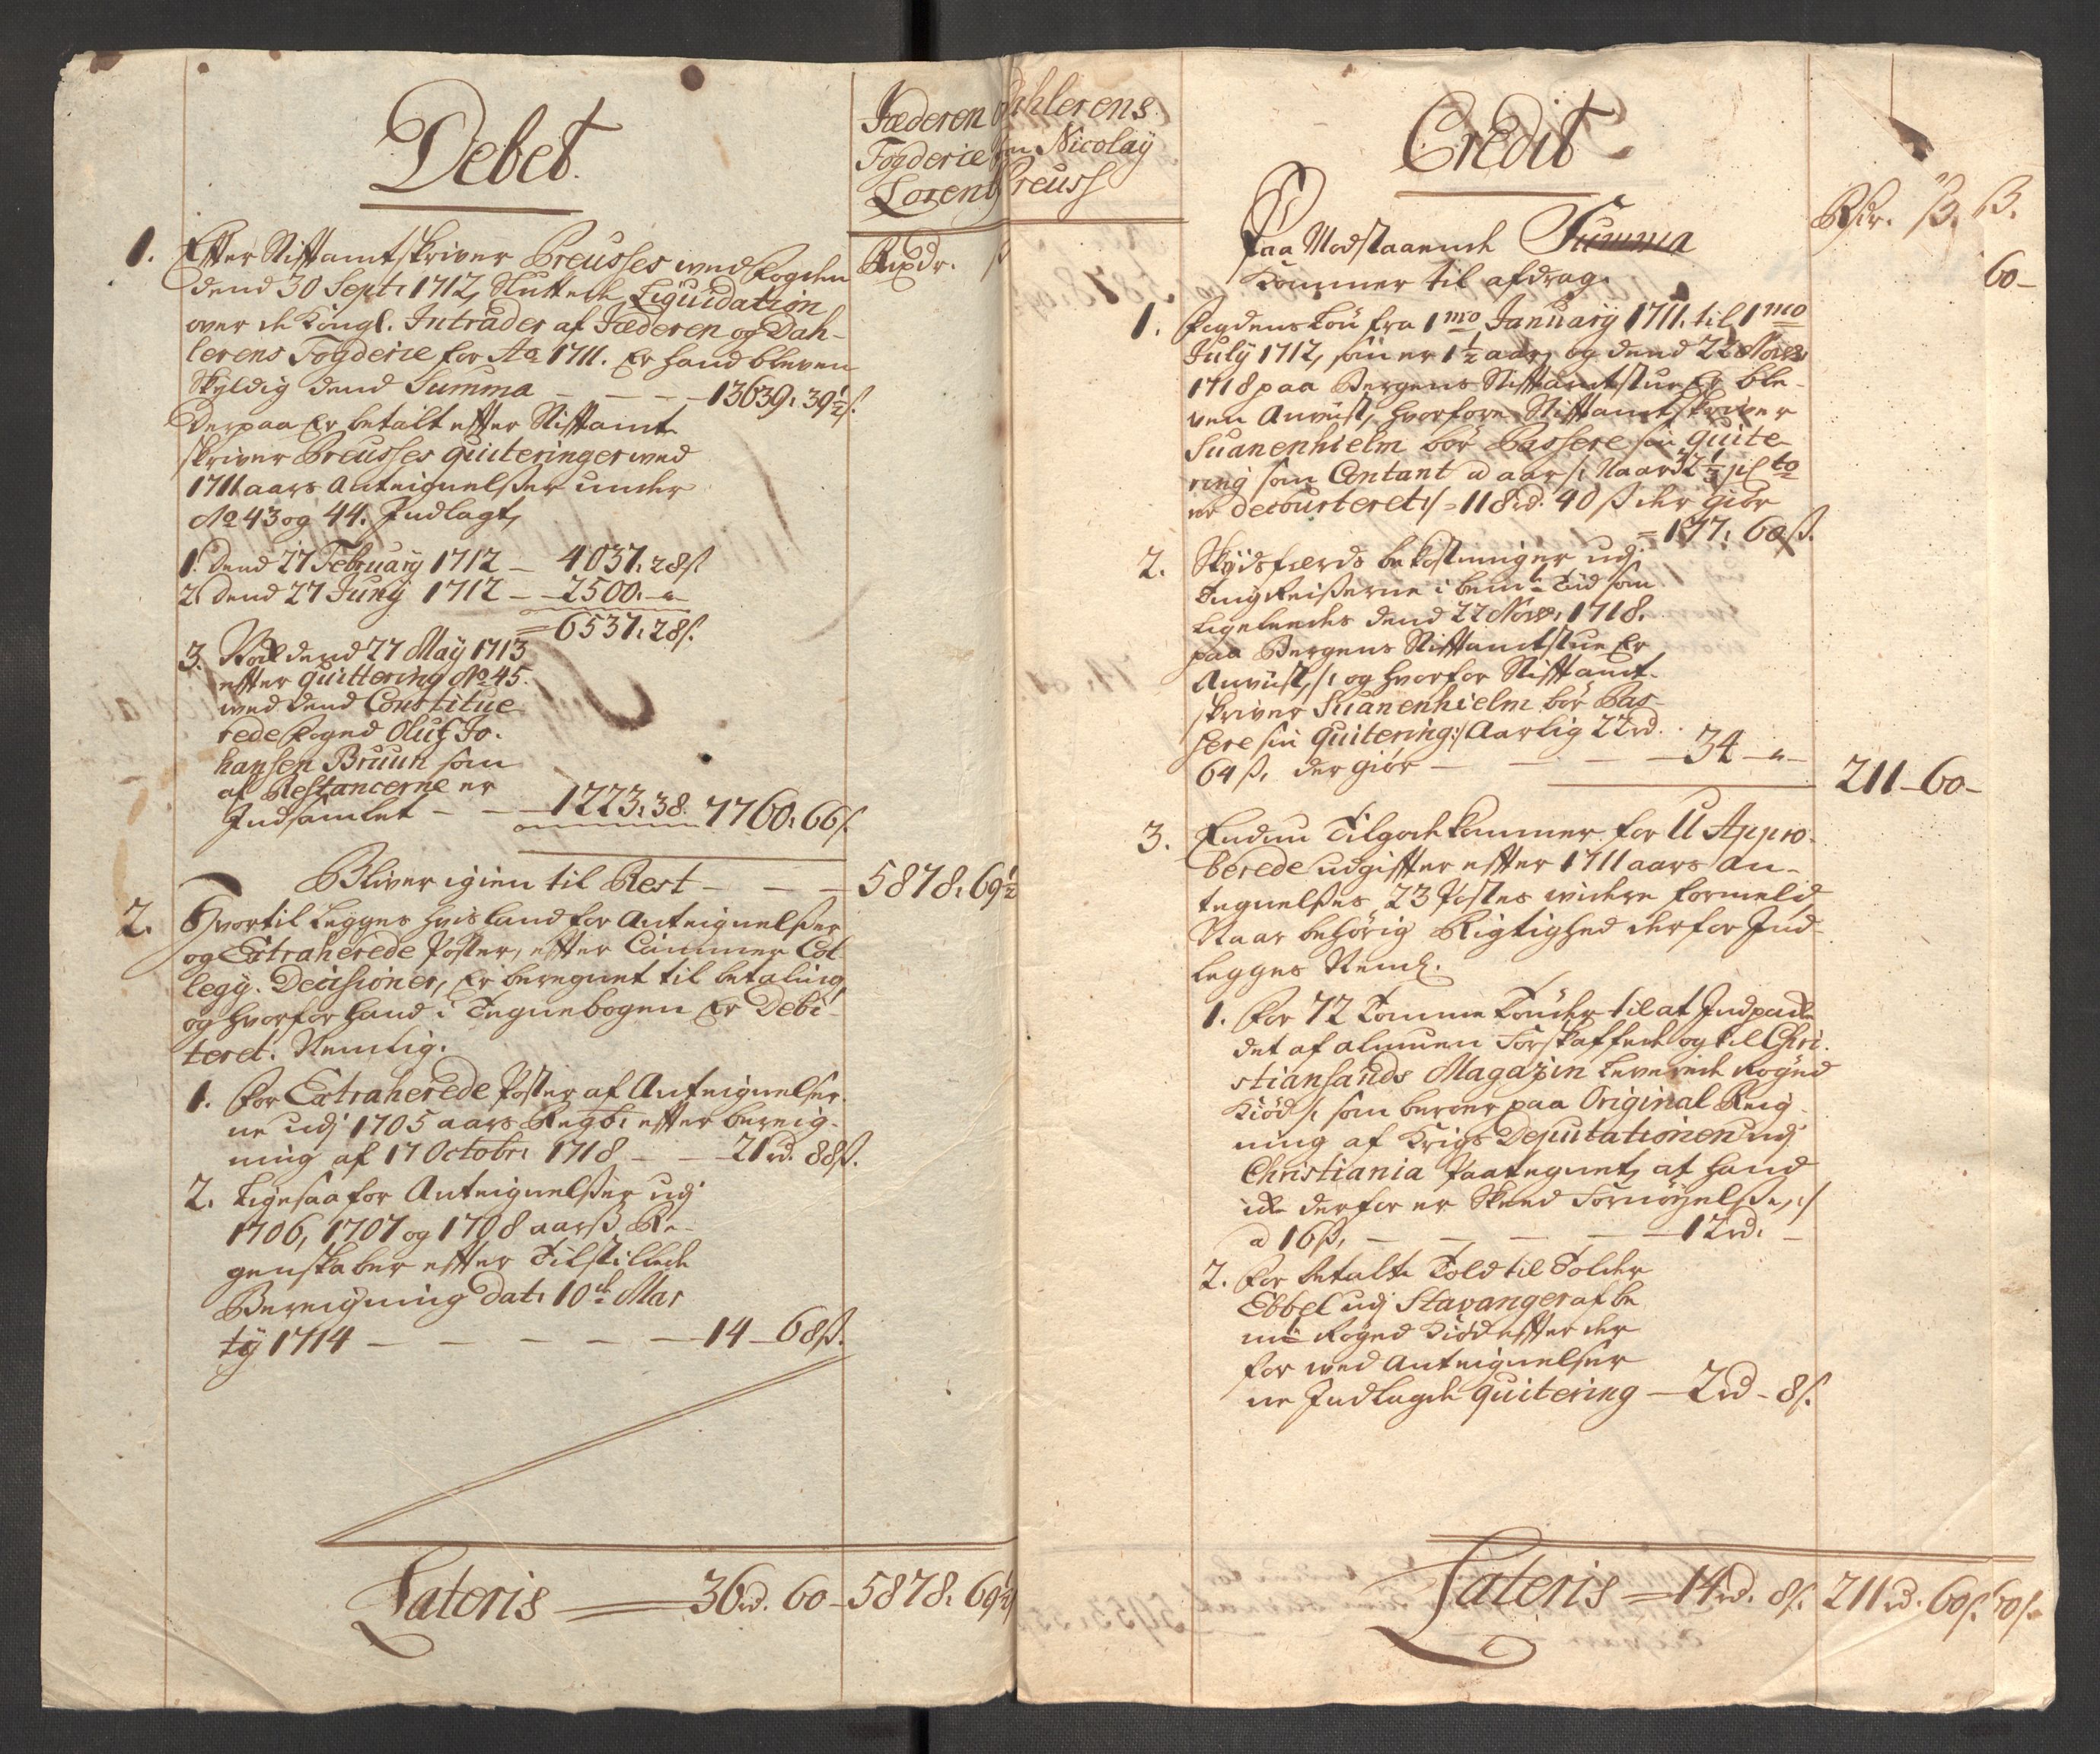 Debet.
Jæderen
Fogderie
Lorens
Rixdr. ß
1. Efter Stiftamtskriver Preusses wed Fogden
dend 30 Sept: 1712, Sluttede Liquidation
over de Kongl. Intrader af Jæderen og Dah-
lerens Fogderie for Ao 1711. Er hand bleven
Skyldig dend Summa — — — 13639: 39½ ß.
Derpaa Er betalt efter Stiftamt-
skriver Preusses quiteringer wed
1711 aars Anteignelßer under
No 43 og 44. Indlagt,
1. Dend 27 February 1712 — 4037: 28 ß
2. Dend 27 Juny 1712 — 2500. —
= 6537: 28 ß.
3. Nok dend 27 May 1713
efter quittering No 45.
wed dend Constitue
rede Foged Oluf Jo-
hansen Bruun som
af Restancerne er
Indsamlet — — 1223: 38. 7760: 66 ß.
Bliver igien til Rest — — — 5878: 69½
2. Hvortil legges hvis hand for Anteignelßer
og Extraherede Poster, efter Cammer Col-
legy. Decisioner, Er beregnet til betaling,
og hvorfor hand i Tegnebogen Er Debi-
teret. Nemlig.
1. For Extraherede Poster af Anteignelßer
ne udj 1705 aars Regsb: efter bereig-
ning af 17 Octobr: 1718 — — 21 rd. 88 ß.
2. Ligesaa for Anteignelßer udj
1706, 1707 og 1708 aarß Re-
genskaber efter Tilstillede
Bereigning dat: 10de Mar
ty 1714 — — — — — 14 — 68 ß.
Lateris — 36 rd. 60 — 5878: 69½
Dahlerens
Nicolay
Preuss
Credit
Rdr. ß. ß.
Paa Modstaaende Summa
60 —
Kommer til afdrag.
1. Fogdens Løn fra 1mo January 1711. til 1mo
July 1712, som er 1½ aar, og dend 22 Novb:
1718 paa Bergens Stiftamtstue Er ble-
ven Anviist, hvorfore Stiftamtskriver
Svanenhielm bør Passere sin quite-
ring som Contant a aar /: Naar 32½ pCto
er decourteret :/ = 118 rd. 40 ß der giør
= 177: 60 ß.
2. Skydsfærds bekostninger udj
Ting Reißerne i bemte Tiid som
Ligeledes dend 22 Novb: 1718.
paa Bergens Stiftamtstue Er
Anviist, /: og hvorfor Stiftamt-
skriver Svanenhielm bør Pas-
sere sin quitering :/ Aarlig 22 rd.
64 ß, der giør — — — — 34 — „ —
211 — 60 —
3. Endnu Tilgodekommer for U Appro-
berede udgifter efter 1711 aars An-
tegnelßes 23 Postes widere formeld,
Naar behørig Rigtighed derfor Ind-
legges Neml.
1. For 72 Tomme Tønder til at Indpacke
det af almuen Forskaffede og til Chri-
stiansands Magazin leverede Røged
Kiød /: som beroer paa Original Reig-
ning af Krigs Deputationen udj
Christiania Paategnet, at hand
icke derfor er Skeed Fornøyelße, :/
a 16 ß, — — — — — 12 rd. —
2. For betalte Told til Tolder
Ebbel udj Stavanger af be
mte Røged Kiød efter der
for wed Anteignelßer
ne Indlagde quitering — 2 rd — 8 ß.
Lateris = 14 rd. 8 ß. 211 rd. 60 ß. 60 ß.